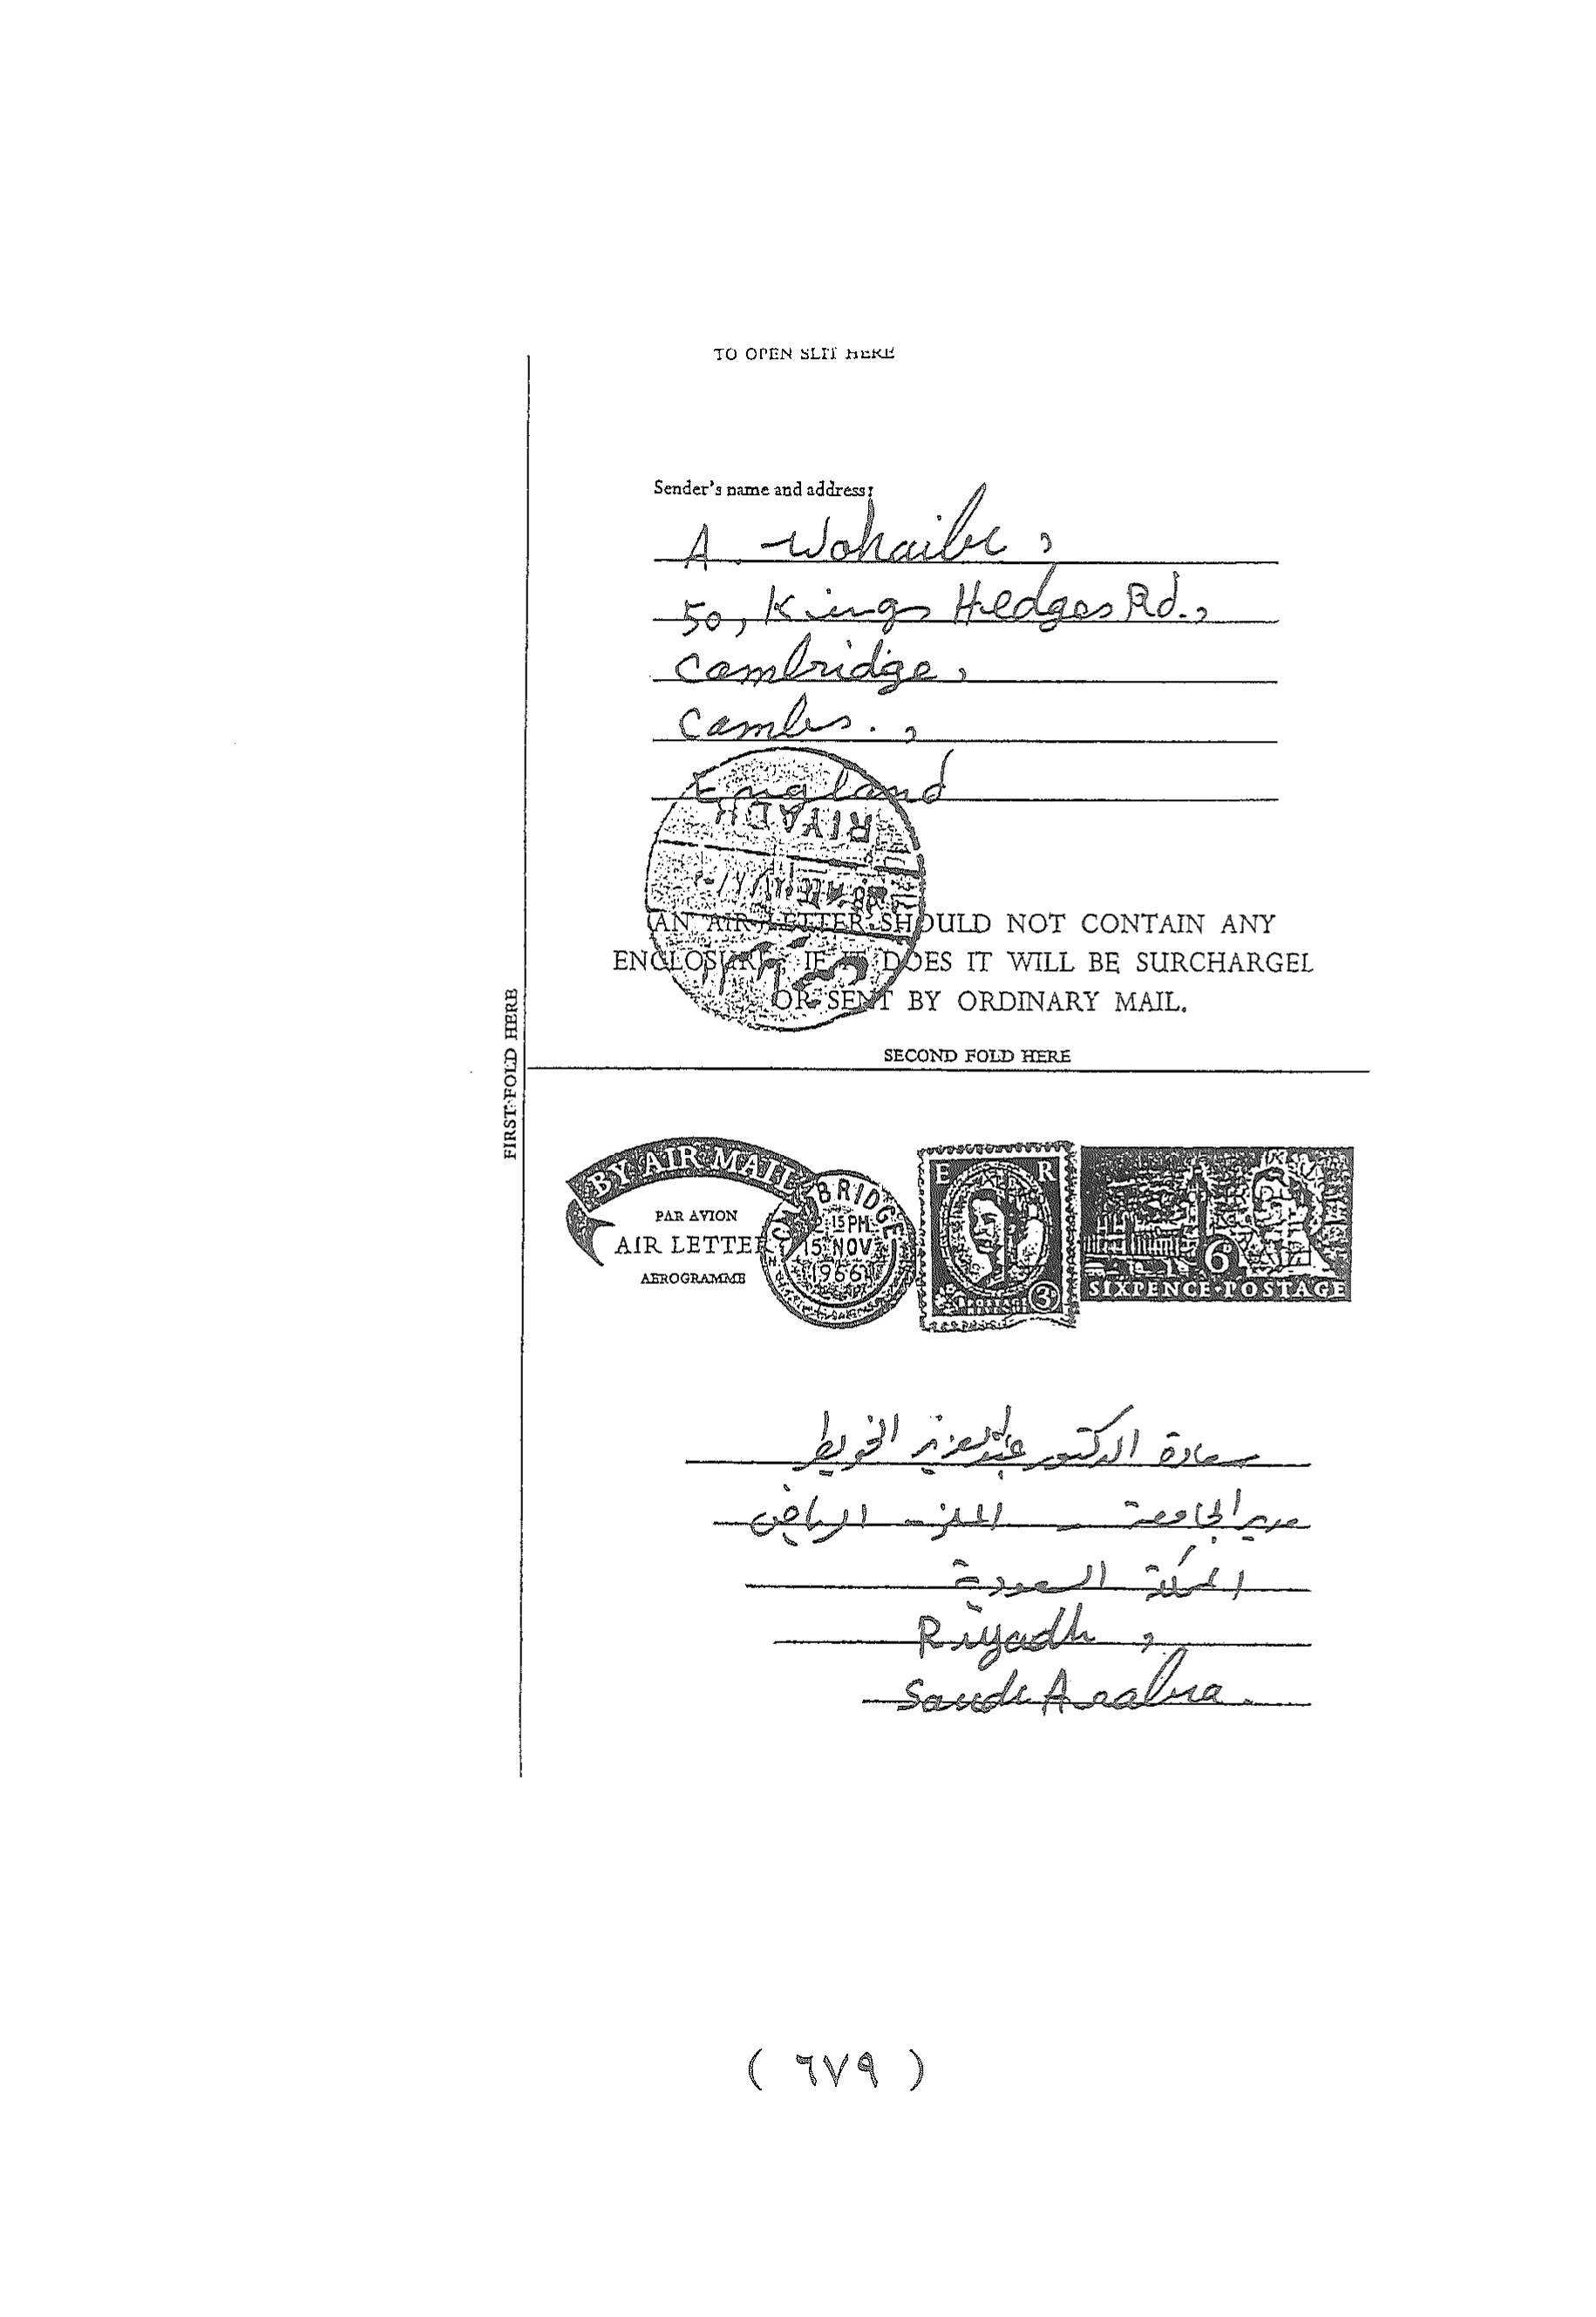 TO OPEN SLIT HERE
Sender's name and address:
A. Wohaibi,
50, Kings Hedges Rd.,
Cambridge,
Cambs.,
England
RIYADH
AN AIR LETTER SHOULD NOT CONTAIN ANY
ENCLOSURE; IF IT DOES IT WILL BE SURCHARGED
OR SENT BY ORDINARY MAIL.
SECOND FOLD HERE
FIRST FOLD HERE
BY AIR MAIL
PAR AVION
AIR LETTER
AEROGRAMME
CAMBRIDGE
2 15 PM
15 NOV
1966
E R
POSTAGE
3D
6D
SIXPENCE POSTAGE
سعادة الدكتور عبدالعزيز الخويطر
مدير الجامعة - الملز - الرياض
المملكة السعودية
Riyadh,
Saudi Arabia.
( ٦٧٩ )